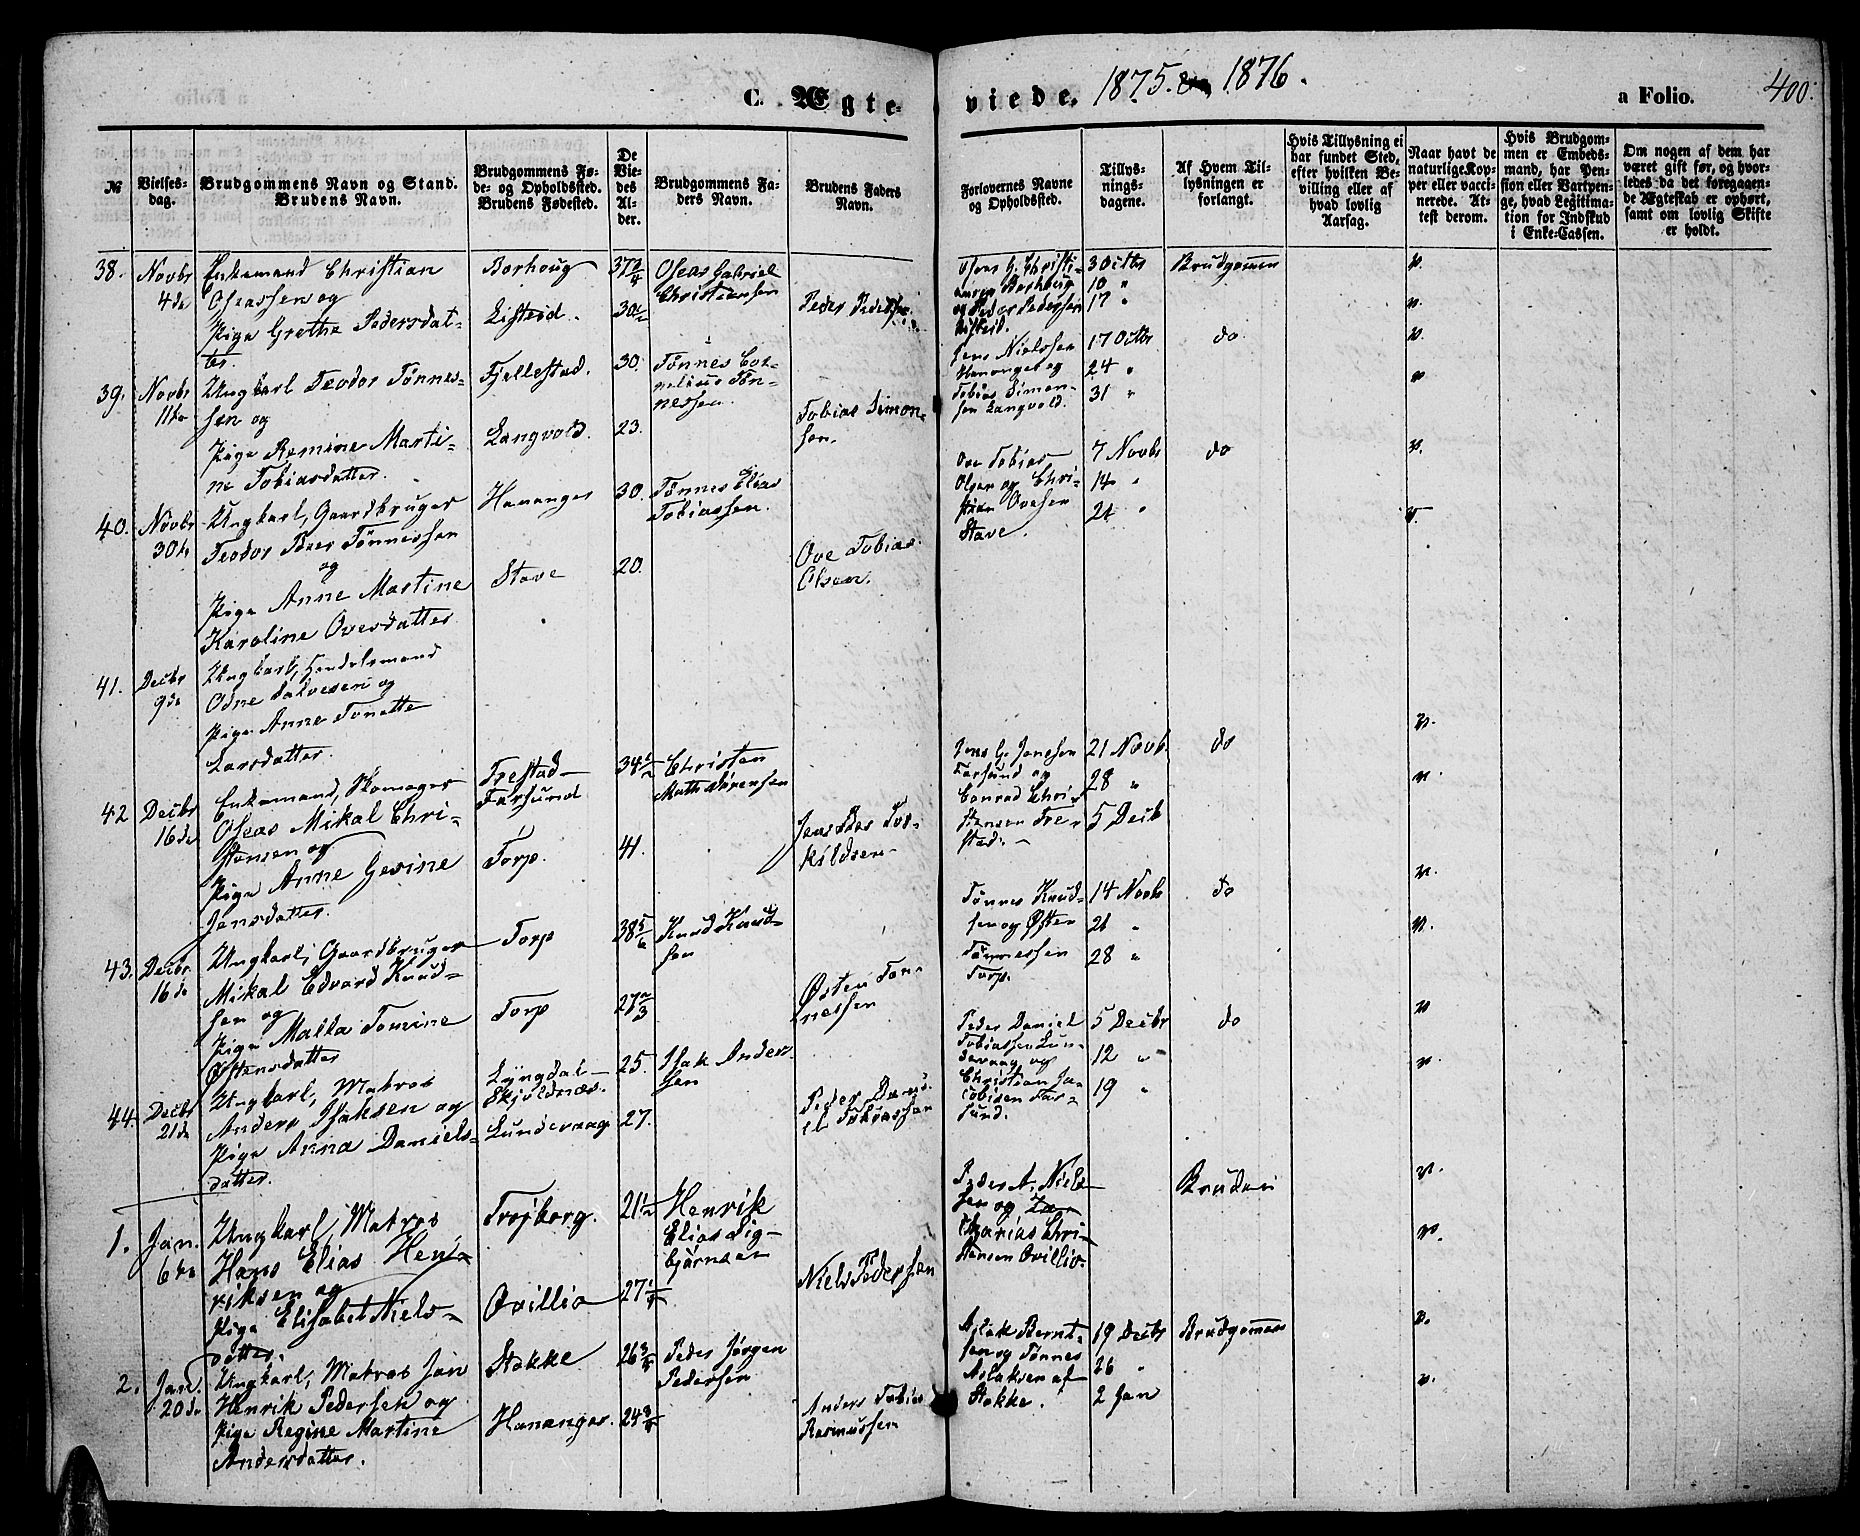 C. Ægte-
viede, 1875. & 1876.
a Folio.
400.
№
Vielses-
dag.
Brudgommens Navn og Stand.
Brudens Navn.
Brudgommens Fø-
de- og Opholdssted.
Brudens Fødested.
De
Vie-
des
Al-
der.
Brudgommens Fa-
ders Navn.
Brudens Faders
Navn.
Forlovernes Navne
og Opholdssted.
Tillys-
nings-
dagene.
Af Hvem Til-
lysningen er
forlangt.
Hvis Tillysning ei
har fundet Sted,
efter hvilken Be-
villing eller af
hvad lovlig
Aarsag.
Naar havt de
naturlige Kop-
per eller vacci-
nerede. At-
test derom.
Hvis Brudgom-
men er Embeds-
mand, har Pen-
sion eller Vartpen-
ge, hvad Legitima-
tion for Indskud
i Enke-Cassen.
Om nogen af dem har
været gift før, og hvor-
ledes da det foregaaen-
de Ægteskab er ophørt,
samt om lovlig Skifte
er holdt.
38.
Novbr
4de
Enkemand Christian
Oseassen og
Pige Grethe Pedersdat-
ter.
Borhoug
Listeid.
37 3/4
30 1/2
Oseas Gabriel
Christiansen
Peder Pedersen
Oseas G. Christi-
ansen Borhoug
og Peder Pedersen
Listeid.
3 Octbr
10 "
17 "
Brudgommen
v.
v.
39.
Novbr
11te
Ungkarl Teodor Tønnes-
sen og
Pige Remine Marti-
ne Tobiasdatter.
Fjellestad.
Langvold.
30.
23.
Tønnes Cor-
nelius Tøn-
nessen.
Tobias Simon-
sen.
Jens Nielssen
Hananger og
Tobias Simon-
sen Langvold.
17 Octbr
24 "
31 "
do
v.
v
40.
Novbr
30te
Ungkarl, Gaardbruger
Teodor Peter Tønnessen
og
Pige Anne Martine
Karoline Ovesdatter
Hananger
Stave
30.
20.
Tønnes Elias
Tobiassen.
Ove Tobias
Olsen.
Ove Tobias
Olsen og Chri-
stian Ovesen
Stave.
7 Novbr
14 "
21 "
do
v.
v.
41.
Decbr
9de
Ungkarl, Handelsmand
Odne Salvesen og
Pige Anne Tonette
Larsdatter.
42
Decbr
16de
Enkemand, Skomager
Oseas Mikal Chri-
stensen og
Pige Anne Gesine
Jensdatter.
Trestad
Farsund
Torp.
34 1/2
41.
Christen
Math. Sørensen
Jens Peter Tor-
kildsen
Jens G. Jenssen
Farsund og
Conrad Chri-
stensen Tre-
stad.
21 Novb.
28 "
5 Decb
do
v.
v.
43.
Decbr
16de
Ungkarl, Gaardbruger
Mikal Edvard Knud-
sen og
Pige Malla Tomine
Østensdatter
Torp
Torp
38 5/6
27 2/3
Knud Knud-
sen
Østen Tøn-
nessen
Tønnes Knud-
sen og Østen
Tønnessen
Torp.
14 Novbr
21 "
28 "
do
v.
v.
44.
Decbr
21de
Ungkarl, Matros
Anders Isaksen og
Pige Anna Daniels-
datter.
Lyngdal
Skjoldnæs.
Lundevaag
25.
27.
Isak Ander-
sen
Peder Dani-
el Tobiassen
Peder Daniel
Tobiassen Lun-
devaag og
Christian Ja-
cobsen Far-
sund.
5 Decbr
12 "
19 "
do
v
v.
1.
Jan.
6te
Ungkarl, Matros
Hans Elias Hen-
riksen og
Pige Elisabet Niels-
datter.
Trojborg.
Ovillio
21 1/2
27 1/4
Henrik
Elias Sig-
bjørnsen
Niels Pedersen
Peder A. Niel-
sen og Za-
charias Chri-
stensen Ovillio
Bruden
v.
v.
2.
Jan.
20de
Ungkarl, Matros Jan
Henrik Pedersen og
Pige Regine Martine
Andersdatter.
Stokke
Hananger.
26 3/4
24 3/4
Peder Jørgen
Pedersen
Anders Tobias
Rasmussen
Aslak Bernt-
sen og Tønnes
Aslaksen af
Stokke.
19 Decbr
26 "
2 Jan
Brudgommen
v.
v.